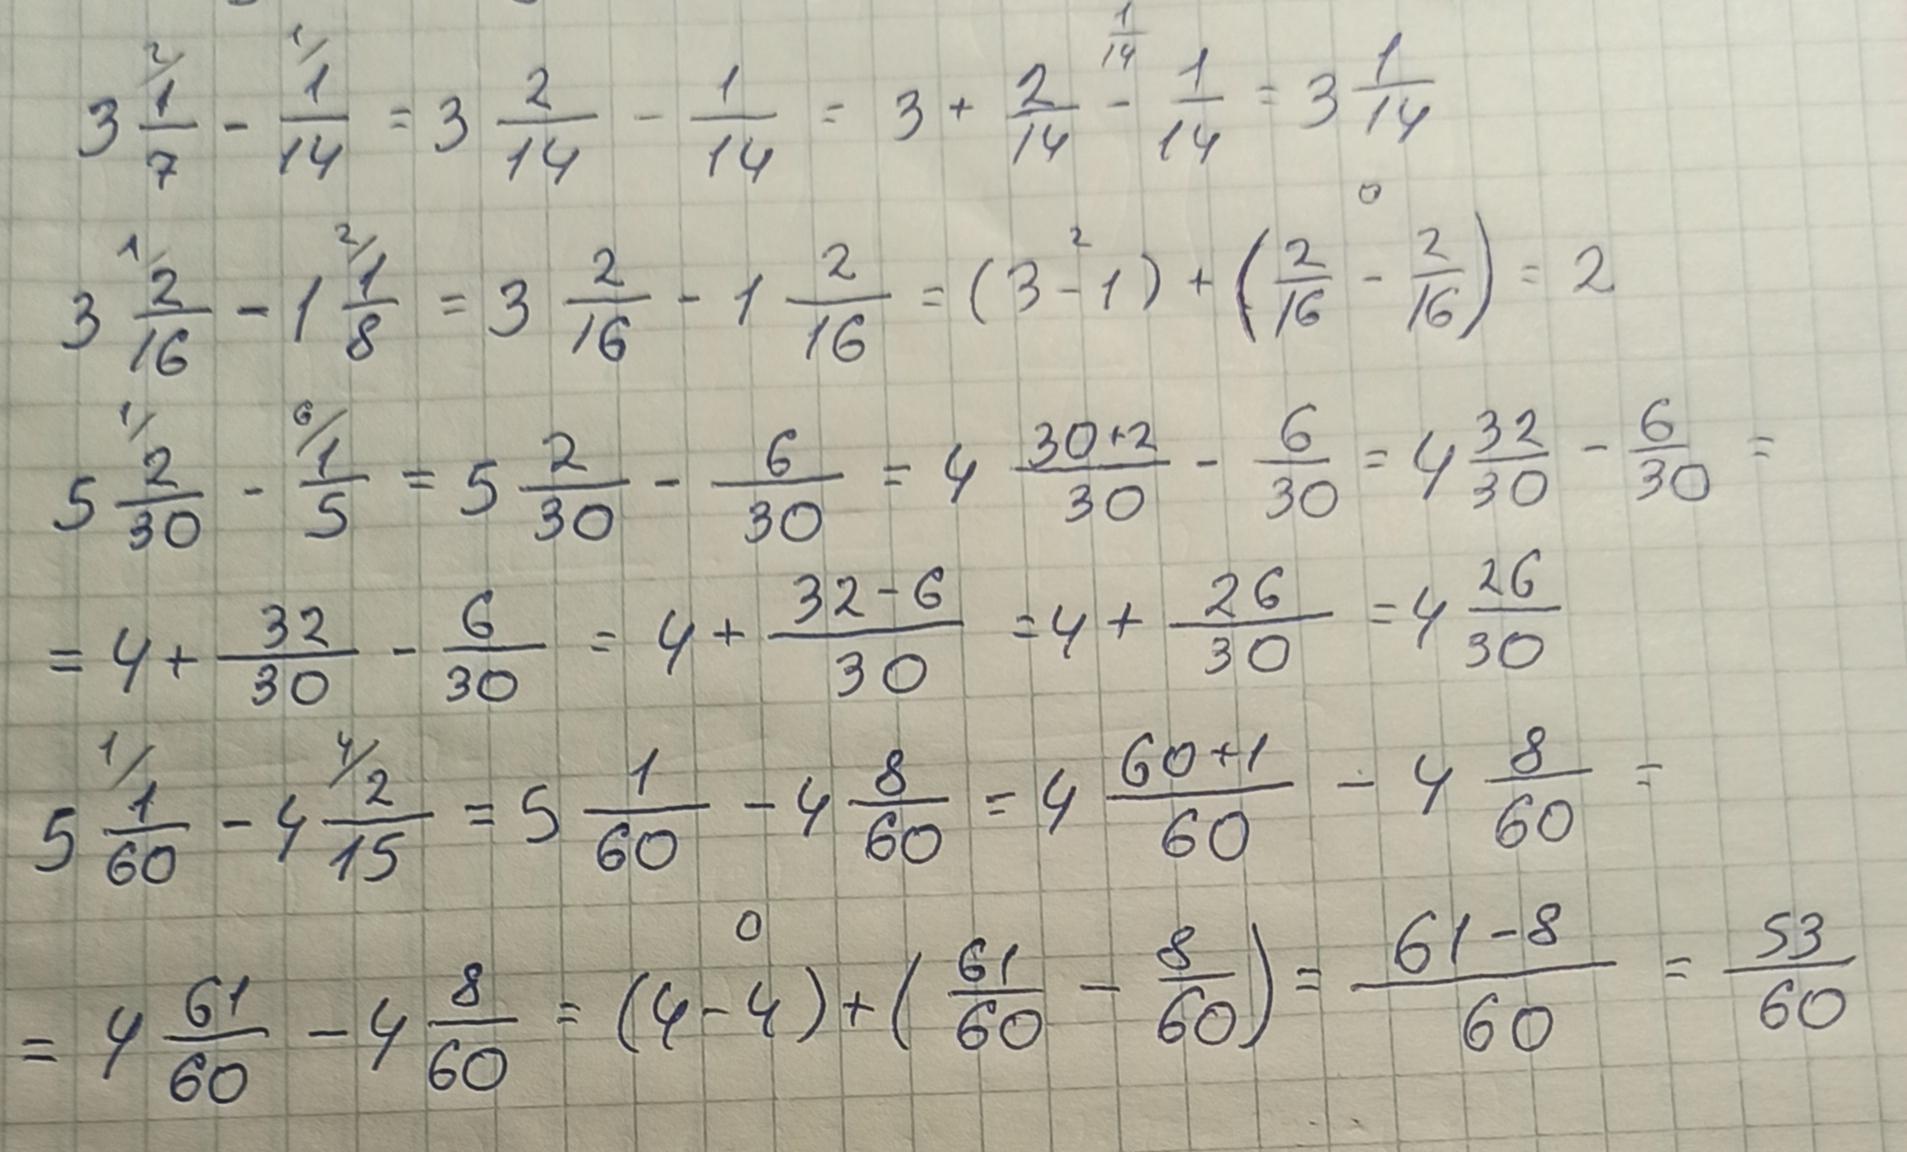 3 1/7 - 1/14 = 3 2/14 - 1/14 = 3 + 2/14 - 1/14 = 3 1/14
3 2/16 - 1 1/8 = 3 2/16 - 1 2/16 = (3 - 1) + (2/16 - 2/16) = 2
5 2/30 - 1/5 = 5 2/30 - 6/30 = 4 30+2/30 - 6/30 = 4 32/30 - 6/30 =
= 4 + 32/30 - 6/30 = 4 + 32-6/30 = 4 + 26/30 = 4 26/30
5 1/60 - 4 2/15 = 5 1/60 - 4 8/60 = 4 60+1/60 - 4 8/60 =
= 4 61/60 - 4 8/60 = (4 - 4) + (61/60 - 8/60) = 61-8/60 = 53/60